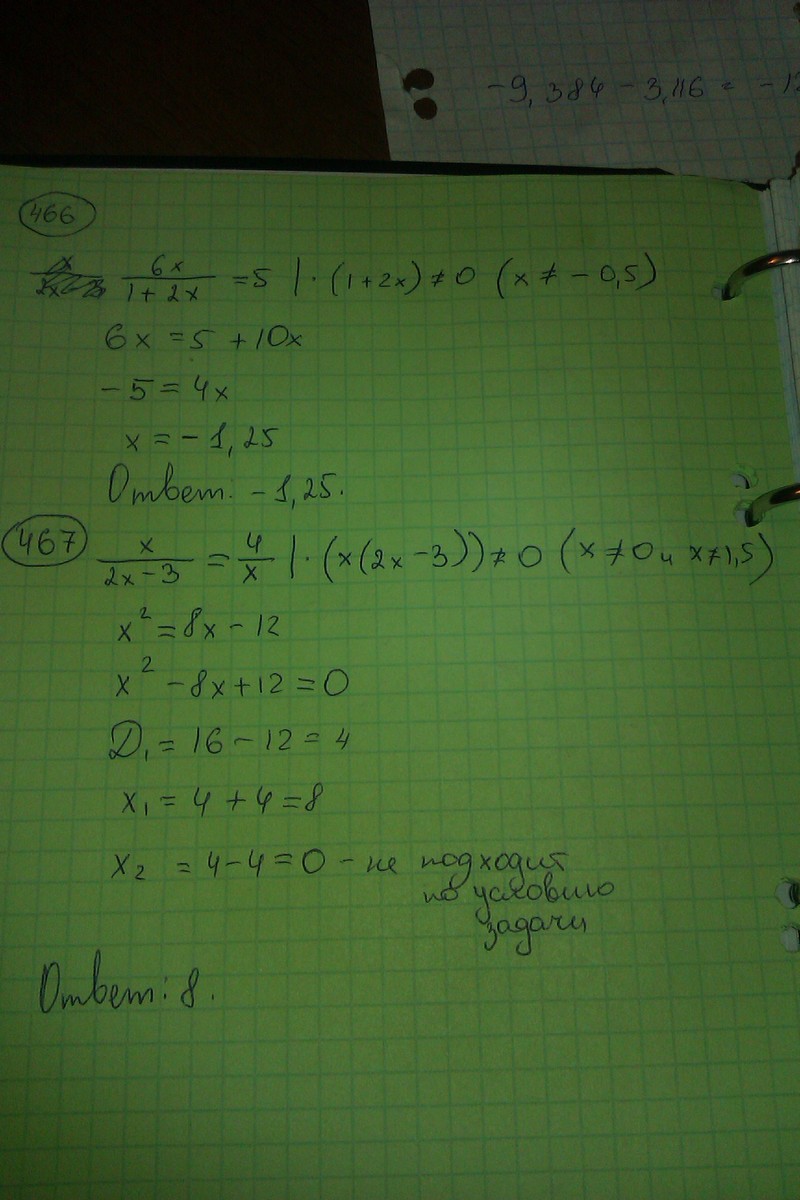 -9,384 - 3,116 = -12
466
6x/(1+2x) = 5 | · (1+2x) ≠ 0 (x ≠ -0,5)
6x = 5 + 10x
-5 = 4x
x = -1,25
Ответ: -1,25.
467 x/(2x-3) = 4/x | · (x(2x-3)) ≠ 0 (x ≠ 0 и x ≠ 1,5)
x² = 8x - 12
x² - 8x + 12 = 0
D₁ = 16 - 12 = 4
x₁ = 4 + 4 = 8
x₂ = 4 - 4 = 0 - не подходит
по условию
задачи
Ответ: 8.